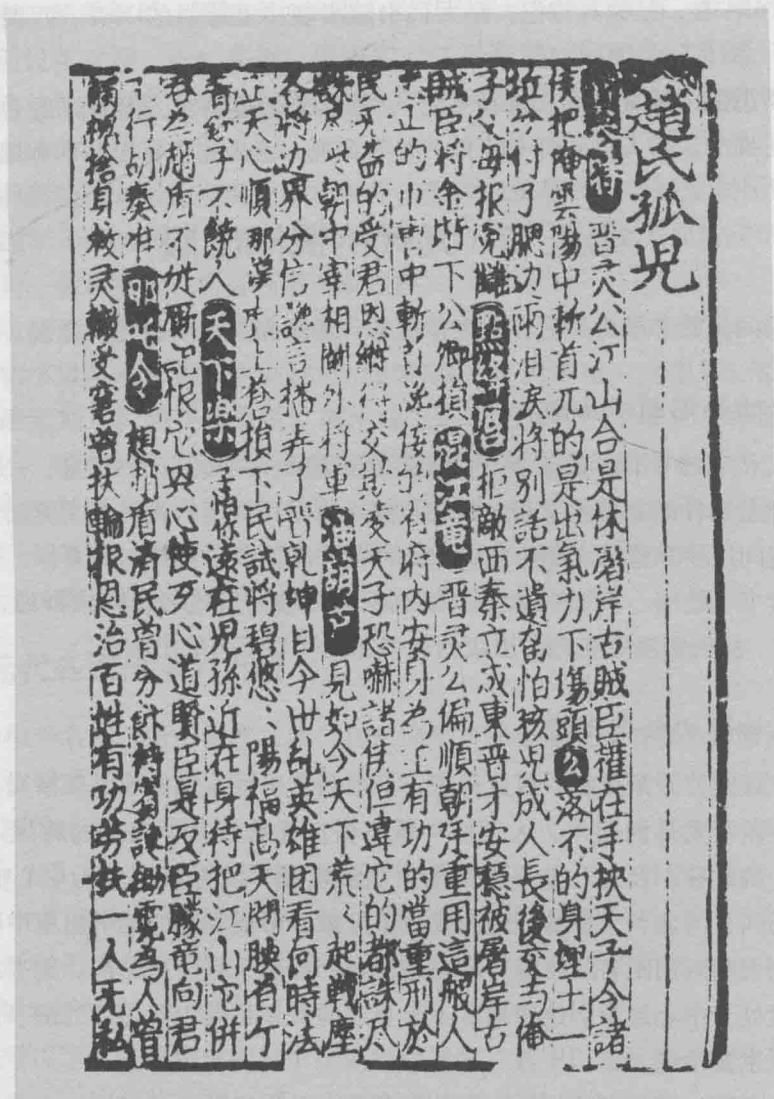 趙氏孤兒
晋灵公江山合是休屠岸古賊臣權在手挾天子令諸
侯把俺雲陽中斬首兀的是出氣力下塲頭公落不的身埋土一
坵分付了腮边兩泪流將别話不遺畄怕孩児成人長後交与俺
子父每报寃讎點絳唇拒敵西秦立成東晋才安穏被屠岸古
賊臣將金堦下公卿損混江竜晋灵公偏順朝廷重用這般人
忠正的市曹中斬首讒佞的省府内安身为主有功的當重刑於
民无益的受君恩縱得交 天子恐嚇諸侯但違它的都誅尽
誅尽些朝中宰相閫外將軍油葫芦見如今天下荒〻起戰塵
各將边界分信讒言播弄了晋乾坤目今世乱英雄困看何時法
正天心順那漢 上蒼損下民試將碧悠〻陽福高天問映有
子不饒人天下樂 遠在児孫近在身待把江山它併
君为趙盾不從厮記恨它興心使歹心道賢臣是反臣朦竜向君
行胡奏准那吒令想趙盾濟民曾分 为人曾
觸槐捨身救灵輒受窘曾扶輪报恩治百姓有功劳扶 人无私